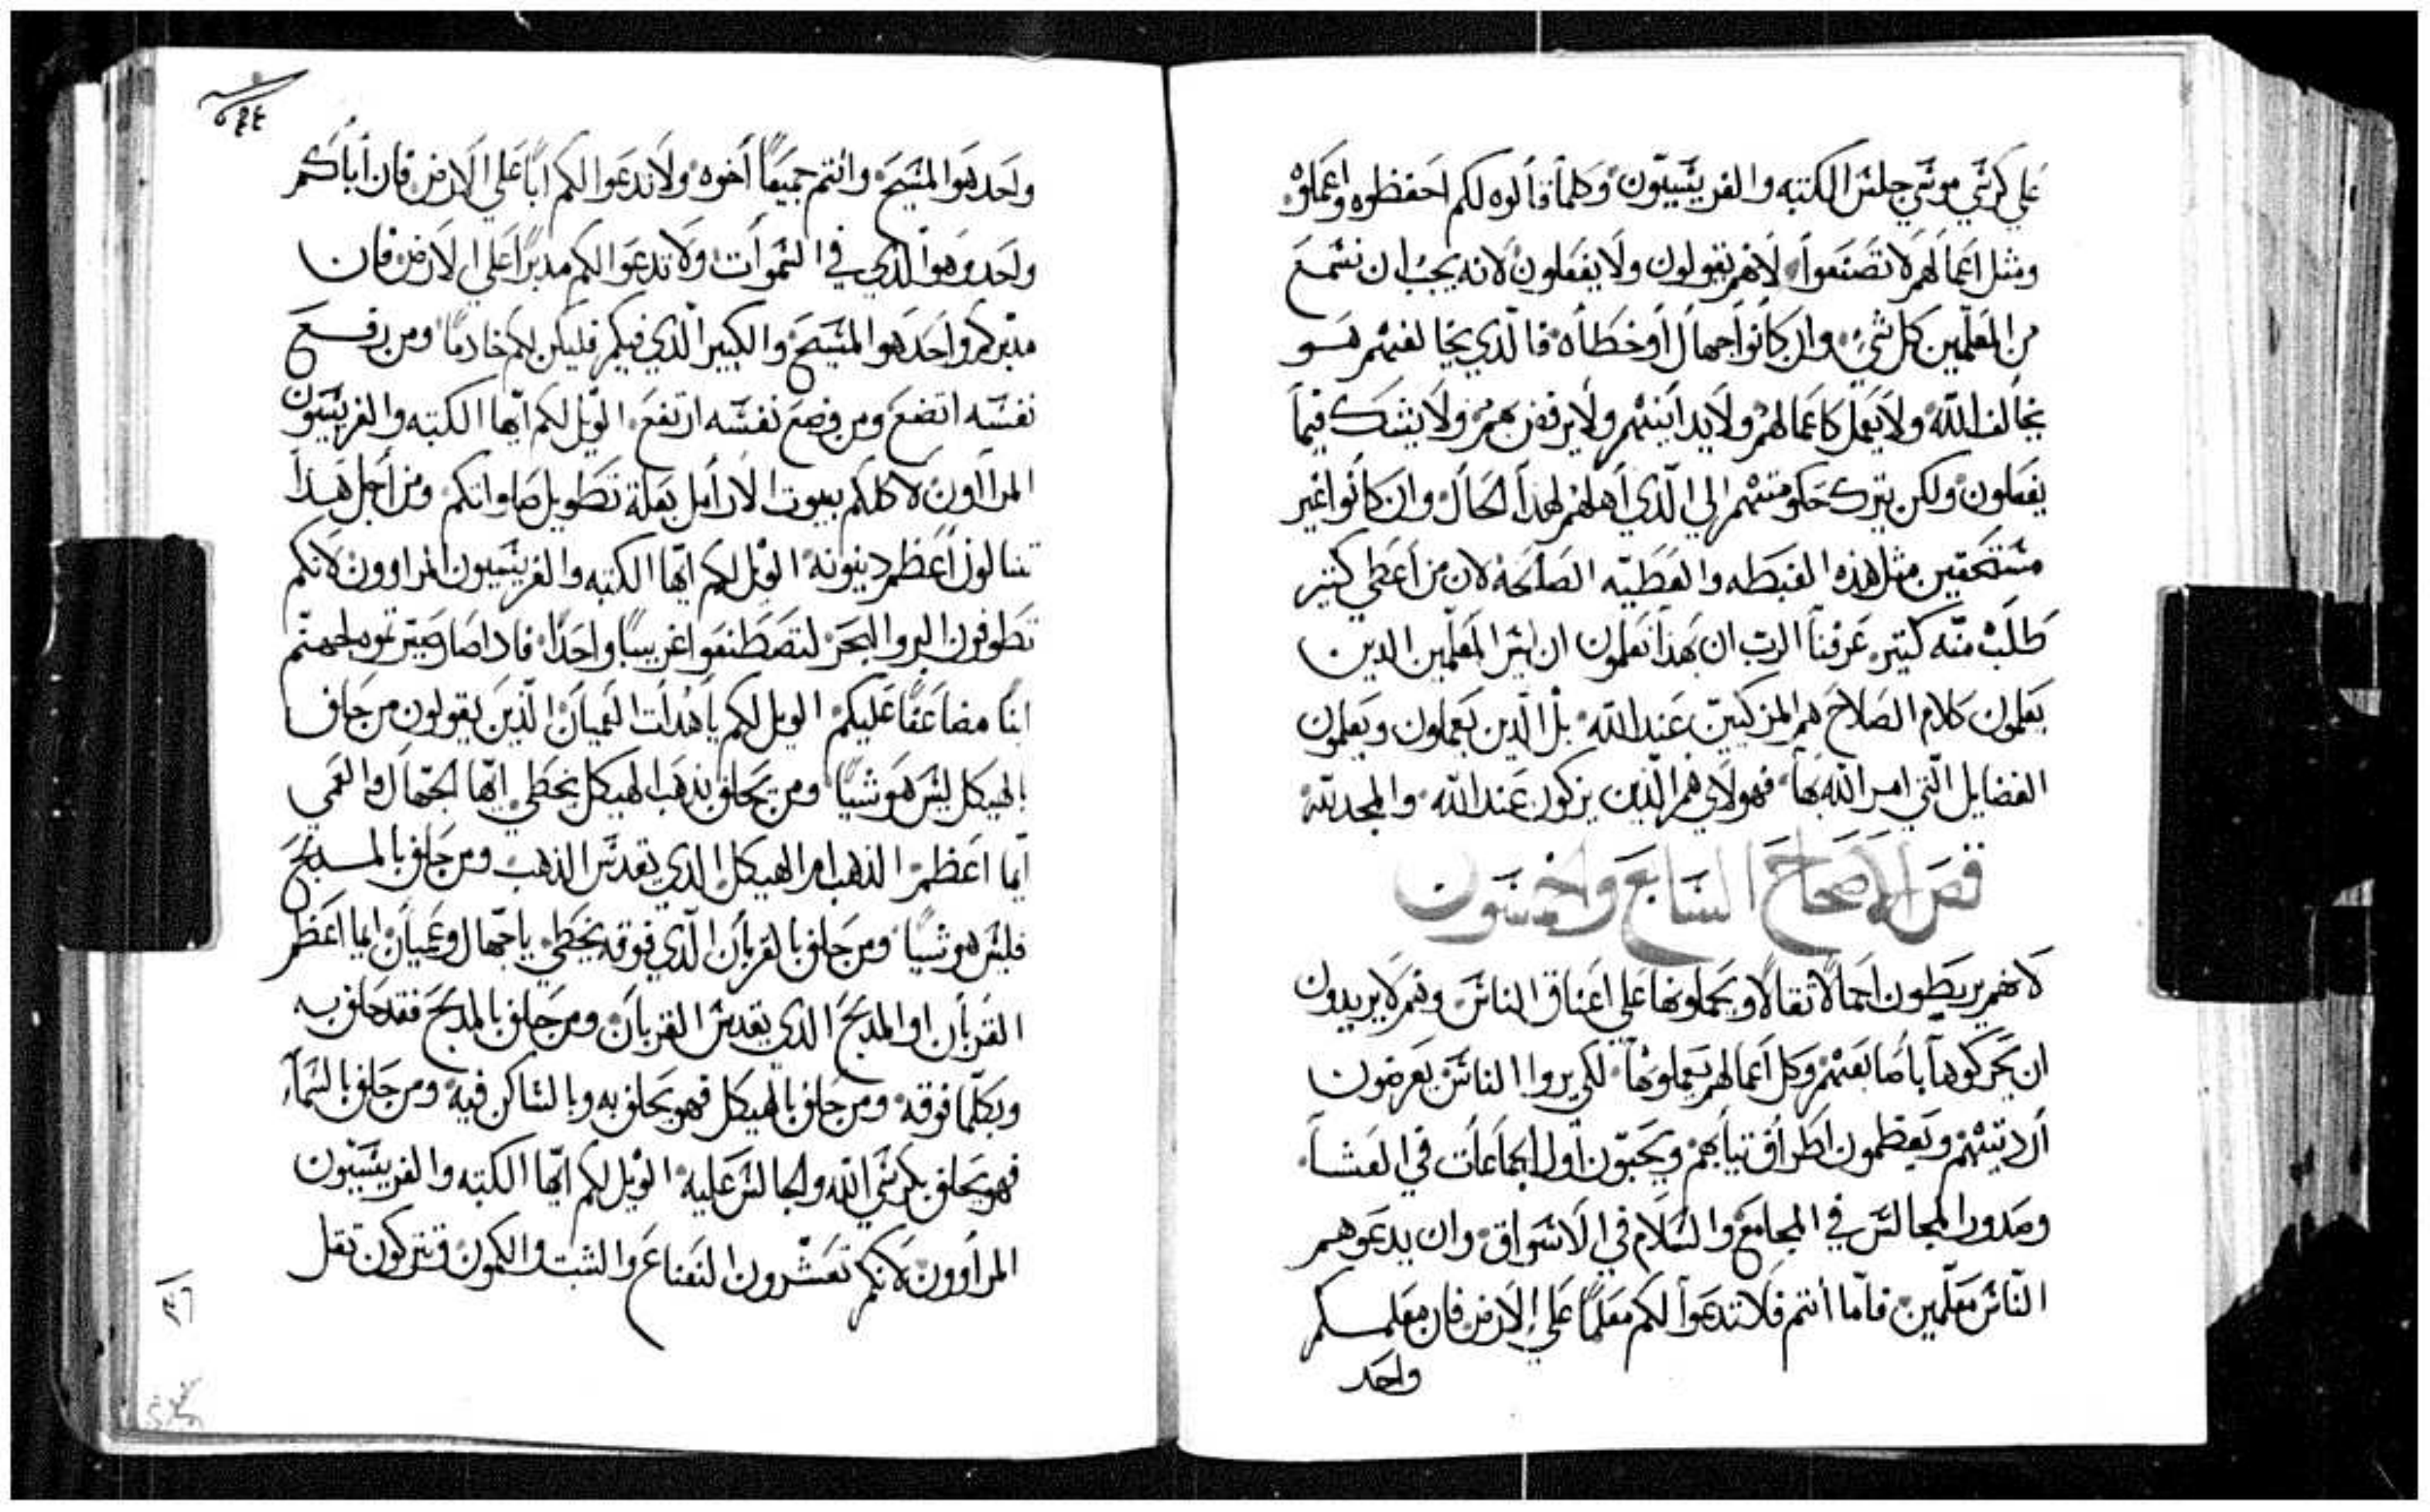 علي كرسي موسي جلس الكتبه والفريسيون وكلما قالوه لكم احفظوه واعملوه
ومثل اعمالهم لا تصنعوا لانهم يقولون ولا يفعلون لانه يجب ان نسمع
من المعلمين كل شي وان كانوا جهال او خطاه فالذي يخالفهم هو
يخالف الله ولا يعمل كاعمالهم ولا يداينهم ولا يرفض بهم ولا يشك فيما
يفعلون ولكن يترك حكومتهم الي الذي اهلهم لهذا الحال وان كانوا غير
مستحقين مثل هذه الغبطه والعطيه الصالحه لان من اعطي كثير
طلب منه كثير عرفنا الرب ان بهذا نعلمون ان ليس المعلمين الدين
يعلمون كلام الصلاح هم المزكيين عند الله بل الذين يعملون ويعلمون
الفضايل التي امر الله بها فهولاي هم الذين يزكون عند الله والمجد لله
فص الاصحاح السابع والخمسون
لانهم يربطون احمالا ثقالا ويحملونها علي اعناق الناس وهم لا يريدون
ان يحركوها باصابعهم وكل اعمالهم يعملونها لكي يروا الناس يعرضون
ارديتهم ويعظمون اطراف تيابهم ويحبون اول الجماعات في العشا
وصدور المجالس في المجامع والسلام في الاسواق وان يدعوهم
الناس معلمين فاما انتم فلا تدعوا لكم معلما علي الارض فان معلمكم
واحد
واحد هو المسيح وانتم جميعا اخوه ولا تدعوا لكم ابا علي الارض فان اباكم
واحد وهو الذي في السموات ولا تدعوا لكم مدبرا علي الارض فان
مدبركم واحد هو المسيح والكبير الذي فيكم فليكن لكم خادما ومن رفع
نفسه اتضع ومن وضع نفسه ارتفع الويل لكم ايها الكتبه والفريسيون
المراون لاكلكم بيوت الارامل بعلة تطويل صلواتكم ومن اجل هدا
تنالون اعظم دينونه الويل لكم ايها الكتبه والفريسيون المراوون لانكم
تطوفون البر والبحر لتصطنعوا غريبا واحدا فادا صار صيرتموه لجهنم
ابنا مضاعفا عليكم الويل لكم يا هداة العميان الذين يقولون من حلف
بالهيكل ليس هو شيا ومن يحلف بذهب الهيكل يخطي ايها الجهال والعمي
ايما اعظم الذهب ام الهيكل الذي يقدس الذهب ومن حلف بالمدبح
فليس هو شيا ومن حلف بالقربان الذي فوقه يخطي يا جهال وعميان ايما اعظم
القربان او المدبح الذي يقدس القربان ومن حلف بالمدبح فقد حلف به
وبكلما فوقه ومن حلف بالهيكل فهو يحلف به وبالساكن فيه ومن حلف بالسماء
فهو يحلف بكرسي الله والجالس عليه الويل لكم ايها الكتبه والفريسيون
المراوون لانكم تعشرون النعناع والشبت والكمون وتتركون ثقل